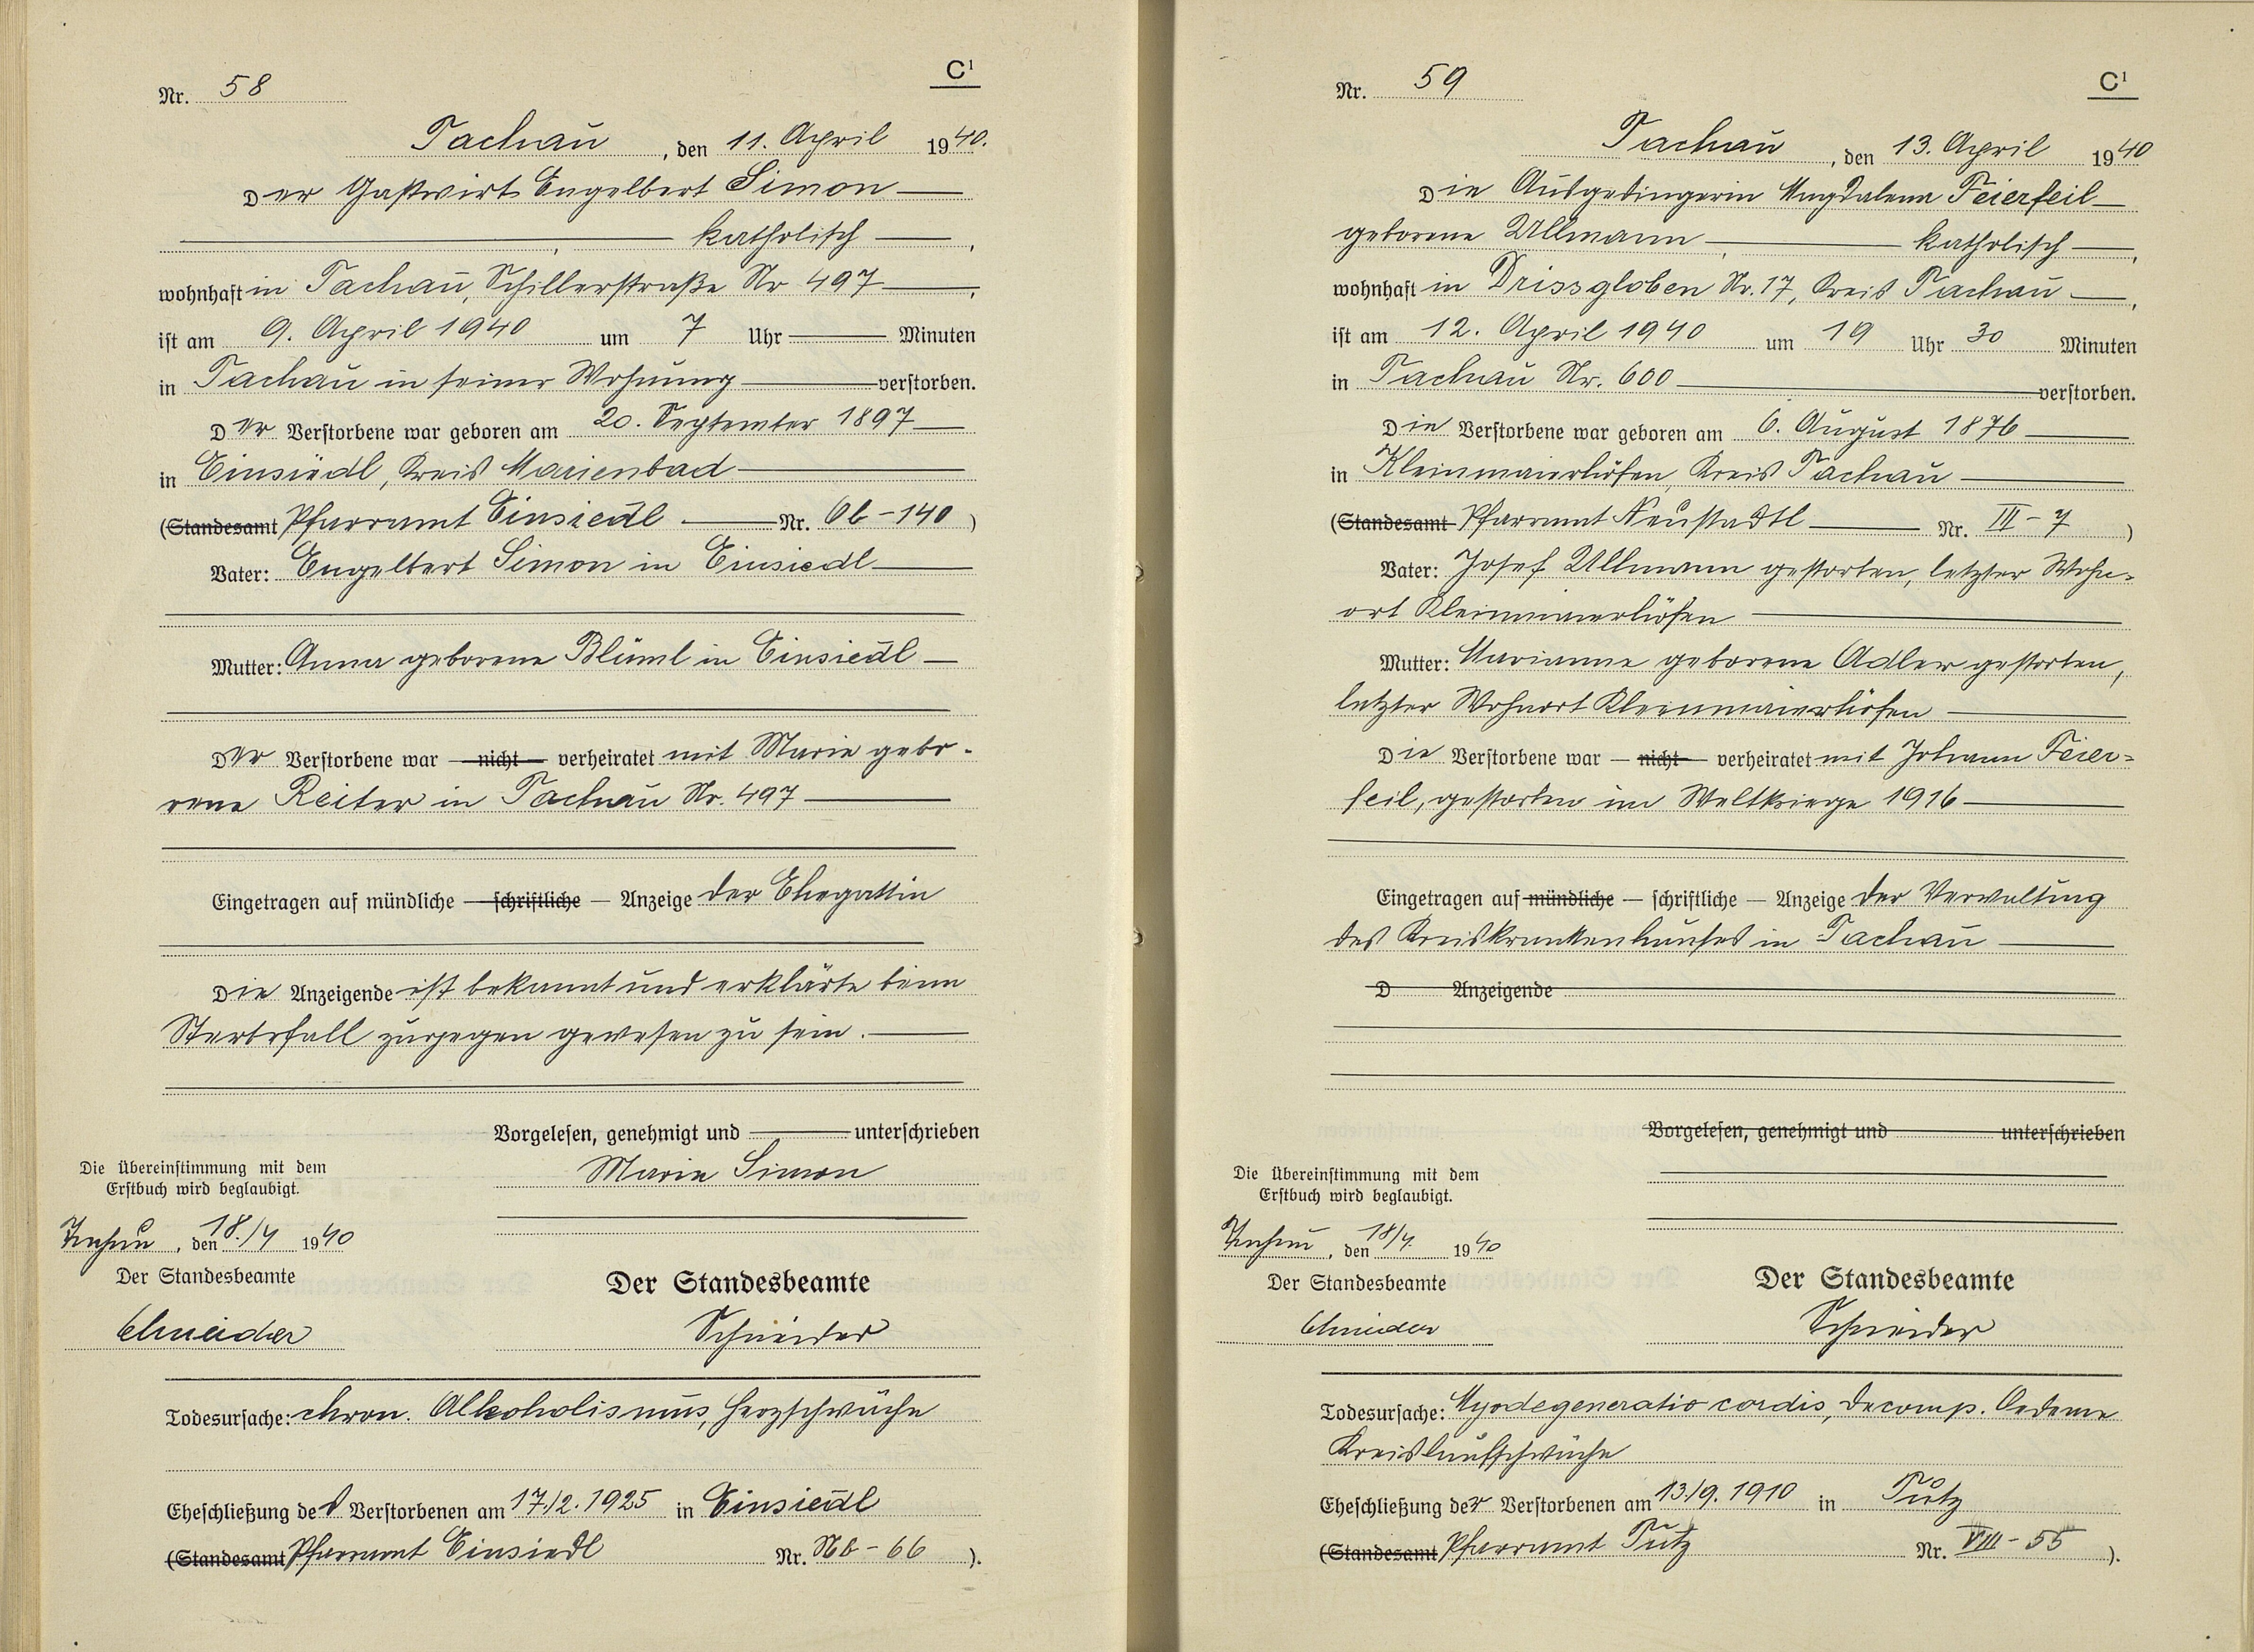 C¹
Nr. 58
Tachau, den 11. April 1940.
Der Gastwirt Engelbert Simon
, katholisch,
wohnhaft in Tachau, Schillerstraße Nr 497,
ist am 9. April 1940 um 7 Uhr Minuten
in Tachau in seiner Wohnung verstorben.
Der Verstorbene war geboren am 20. September 1897
in Einsiedl, Kreis Marienbad
(Standesamt Pfarramt Einsiedl Nr. Ob-140)
Vater: Engelbert Simon in Einsiedl
Mutter: Anna geborene Blüml in Einsiedl
Der Verstorbene war — nicht — verheiratet mit Marie gebo-
rene Reiter in Tachau Nr. 497
Eingetragen auf mündliche — schriftliche — Anzeige der Ehegattin
Die Anzeigende ist bekannt und erklärte beim
Sterbefall zugegen gewesen zu sein.
Vorgelesen, genehmigt und unterschrieben
Marie Simon
Die Übereinstimmung mit dem
Erstbuch wird beglaubigt.
Tachau, den 18./4 1940
Der Standesbeamte
Schneider
Der Standesbeamte
Schneider
Todesursache: chron. Alkoholismus, Herzschwäche
Eheschließung des Verstorbenen am 17./2. 1925 in Einsiedl
(Standesamt Pfarramt Einsiedl Nr. - 66).
C¹
Nr. 59
Tachau, den 13. April 1940
Die Ausgedingerin Magdalena Feierfeil
geborene Ullmann, katholisch,
wohnhaft in Drissgloben Nr. 17, Kreis Tachau,
ist am 12. April 1940 um 19 Uhr 30 Minuten
in Tachau Nr. 600 verstorben.
Die Verstorbene war geboren am 6. August 1876
in Kleinmaierhöfen, Kreis Tachau
(Standesamt Pfarramt Neustadtl Nr. III-7)
Vater: Josef Ullmann gestorben, letzter Wohn-
ort Kleinmaierhöfen
Mutter: Marianne geborene Adler gestorben,
letzter Wohnort Kleinmaierhöfen
Die Verstorbene war — nicht — verheiratet mit Johann Feier-
feil, gestorben im Weltkriege 1916
Eingetragen auf mündliche — schriftliche — Anzeige der Verwaltung
des Kreiskrankenhauses in Tachau
D Anzeigende
Vorgelesen, genehmigt und unterschrieben
Die Übereinstimmung mit dem
Erstbuch wird beglaubigt.
Tachau, den 18/4. 1940
Der Standesbeamte
Schneider
Der Standesbeamte
Schneider
Todesursache: Myodegeneratio cordis, decomp. Oedeme
Kreislaufschwäche
Eheschließung der Verstorbenen am 13./9. 1910 in Tutz
(Standesamt Pfarramt Tutz Nr. VIII-55).